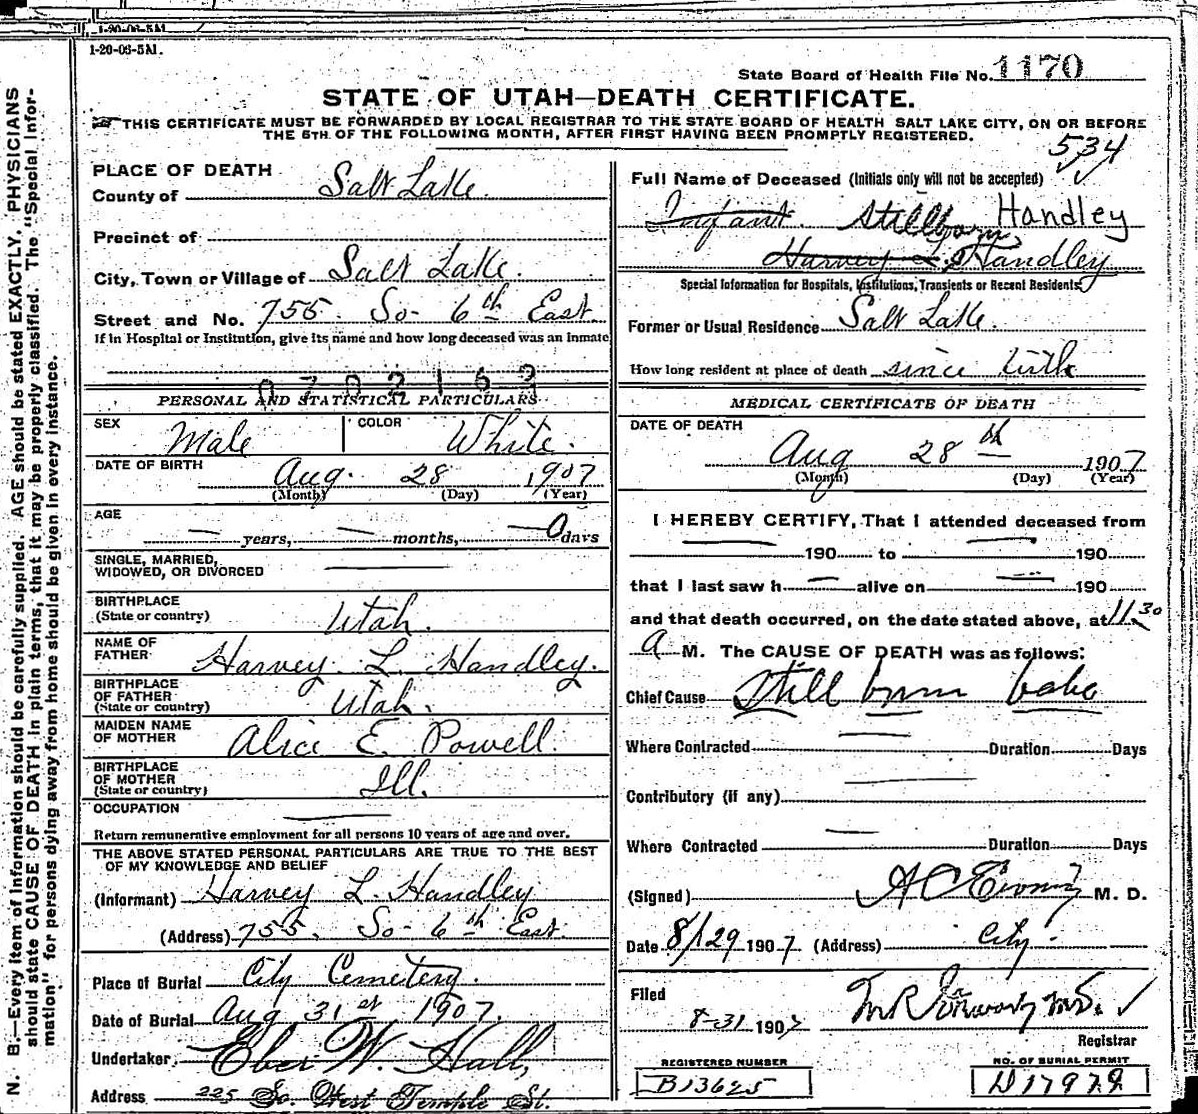 1-20-06-5M.
1-20-06-5M.
State Board of Health File No. 1170
STATE OF UTAH—DEATH CERTIFICATE.
THIS CERTIFICATE MUST BE FORWARDED BY LOCAL REGISTRAR TO THE STATE BOARD OF HEALTH SALT LAKE CITY, ON OR BEFORE
THE 5TH OF THE FOLLOWING MONTH, AFTER FIRST HAVING BEEN PROMPTLY REGISTERED.
534
N. B.—Every item of Information should be carefully supplied. AGE should be stated EXACTLY. PHYSICIANS
should state CAUSE OF DEATH in plain terms, that it may be properly classified. The "Special Infor-
mation" for persons dying away from home should be given in every instance.
PLACE OF DEATH
County of Salt Lake
Precinct of
City, Town or Village of Salt Lake.
Street and No. 755 So- 6th East
If in Hospital or Institution, give its name and how long deceased was an inmate
0702163
PERSONAL AND STATISTICAL PARTICULARS
SEX Male COLOR White.
DATE OF BIRTH
Aug. 28 1907
(Month) (Day) (Year)
AGE
— years, — months, — 0 days
SINGLE, MARRIED,
WIDOWED, OR DIVORCED
BIRTHPLACE
(State or country) Utah.
NAME OF
FATHER Harvey L. Handley.
BIRTHPLACE
OF FATHER
(State or country) Utah.
MAIDEN NAME
OF MOTHER Alice E. Powell.
BIRTHPLACE
OF MOTHER
(State or country) Ill.
OCCUPATION
Return remunerative employment for all persons 10 years of age and over.
THE ABOVE STATED PERSONAL PARTICULARS ARE TRUE TO THE BEST
OF MY KNOWLEDGE AND BELIEF
(Informant) Harvey L. Handley
(Address) 755. So- 6th East.
Place of Burial City Cemetery.
Date of Burial Aug 31st 1907.
Undertaker, Eber W. Hall,
Address 225 So. West Temple St.
Full Name of Deceased (Initials only will not be accepted)
Infant. Stillborn Handley
Harvey L. Handley
Special Information for Hospitals, Institutions, Transients or Recent Residents
Former or Usual Residence Salt Lake.
How long resident at place of death since birth
MEDICAL CERTIFICATE OF DEATH
DATE OF DEATH
Aug 28th 1907
(Month) (Day) (Year)
I HEREBY CERTIFY, That I attended deceased from
— 190 to — 190
that I last saw h — alive on — 190
and that death occurred, on the date stated above, at 11.30
a M. The CAUSE OF DEATH was as follows:
Chief Cause Still born babe
Where Contracted Duration Days
Contributory (if any)
Where Contracted Duration Days
(Signed) M. D.
Date 8/29 1907 (Address) City.
Filed
8-31 1907
Registrar
REGISTERED NUMBER
B13625
NO. OF BURIAL PERMIT
D17979